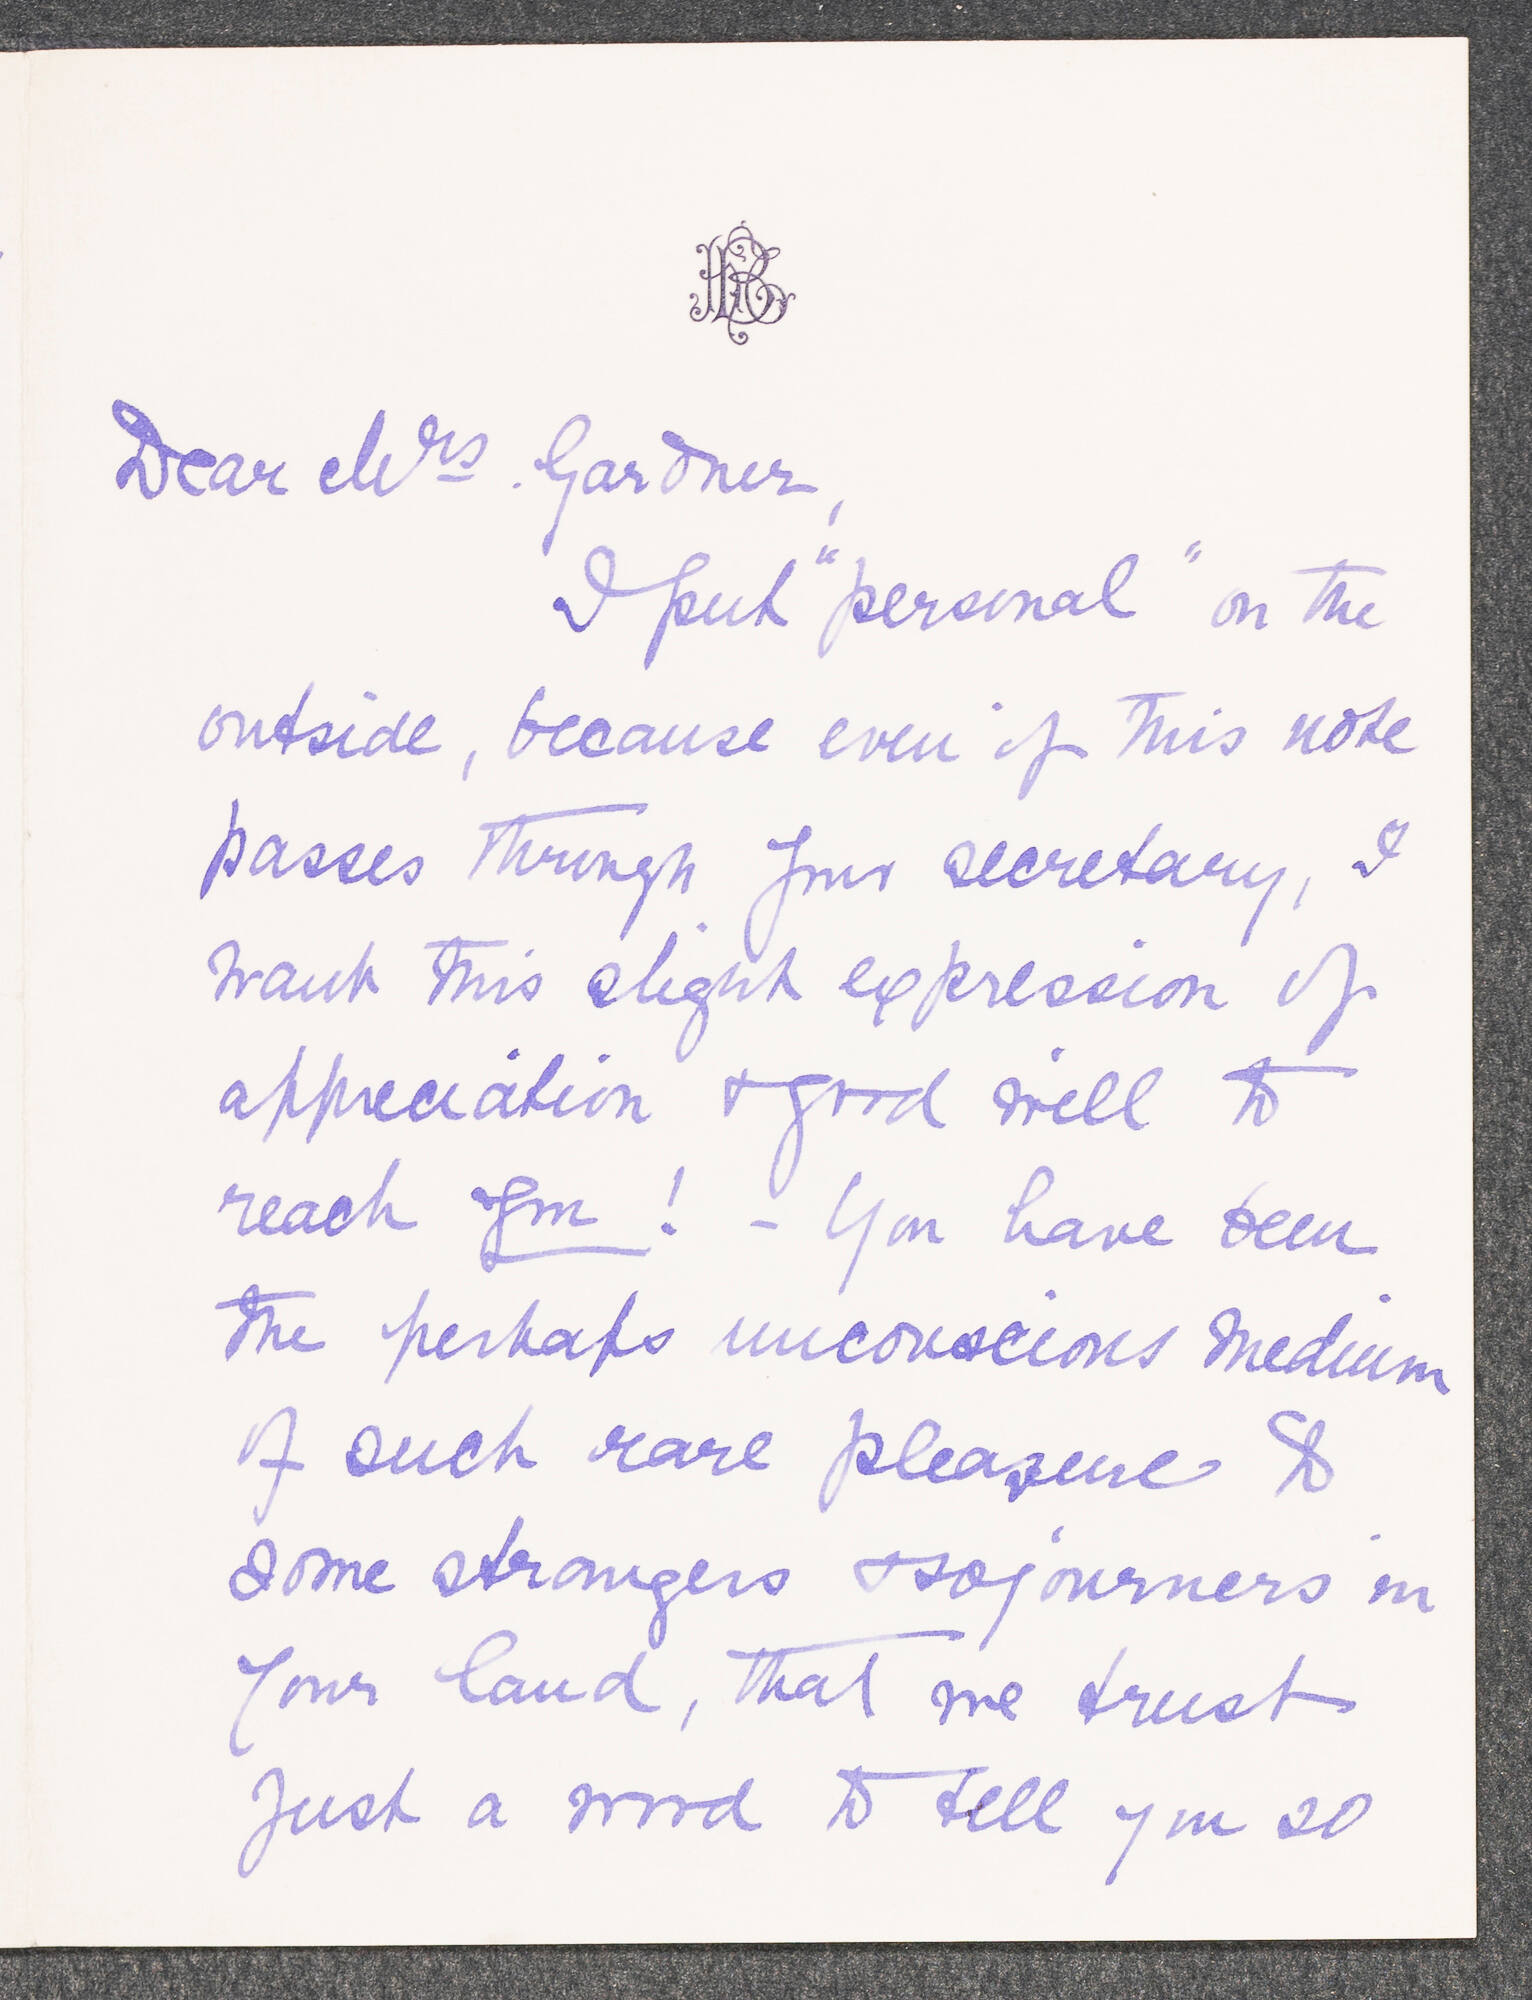 Dear Mrs. Gardner,
I put "personal" on the
outside, because even if this note
passes through your secretary, I
want this slight expression of
appreciation & good will to
reach you! - You have been
the perhaps unconscious medium
of such rare pleasure to
some strangers & sojourners in
your land, that we trust
just a word to tell you so